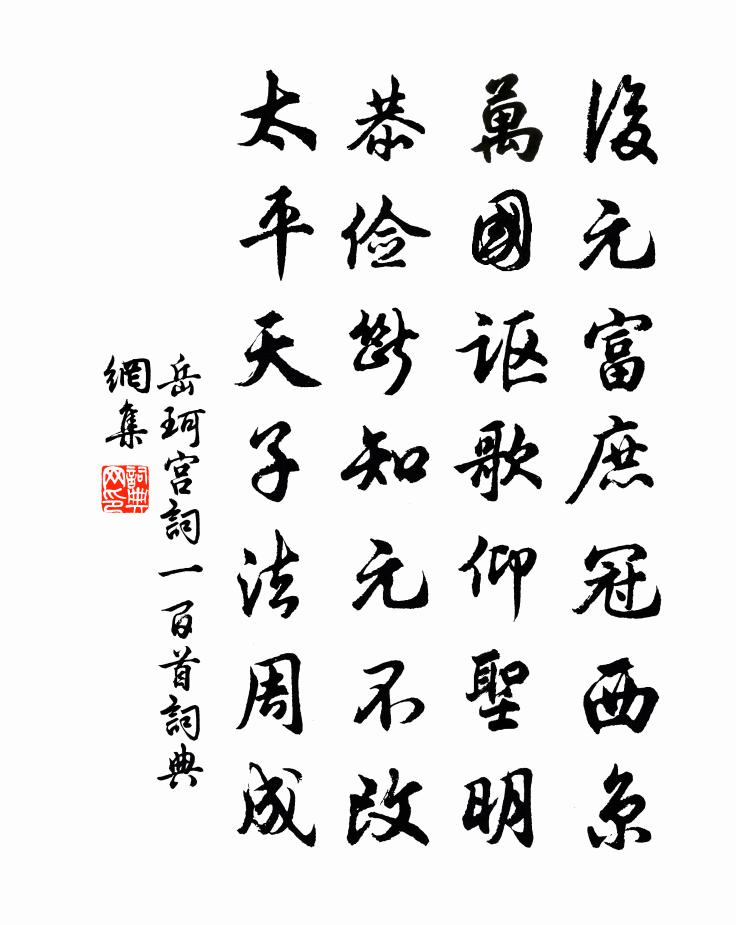 後元富庶冠西京
萬國謳歌仰聖明
恭儉斷知元不改
太平天子法周成
岳珂宮詞一百首詞典
網集
詞典
網印